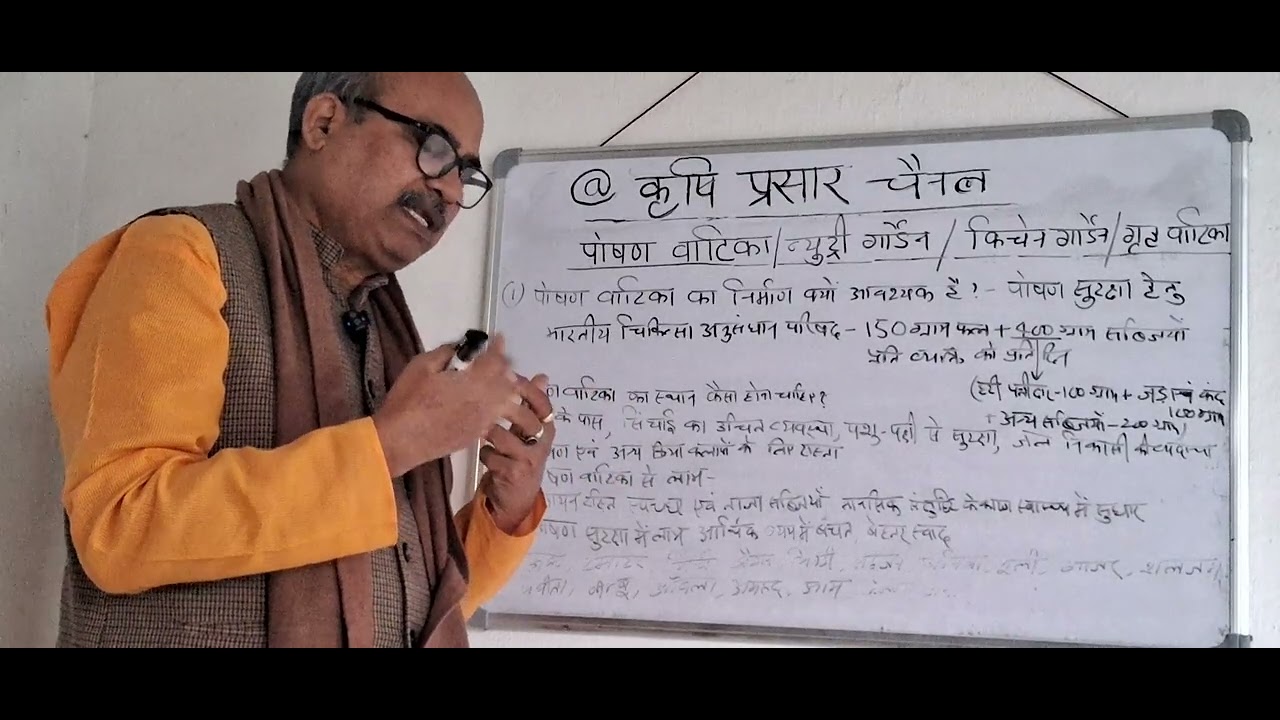 @ कृषि प्रसार चैनल
पोषण वाटिका/न्युट्री गार्डेन / किचेन गार्डेन/गृह वाटिका
(1) पोषण वाटिका का निर्माण क्यों आवश्यक है? - पोषण सुरक्षा हेतु
भारतीय चिकित्सा अनुसंधान परिषद - 150 ग्राम फल + 400 ग्राम सब्जियाँ
प्रति व्यक्ति को प्रतिदिन
(हरी पत्तीदार-100 ग्राम + जड़ एवं कंद
100 ग्राम
+ अन्य सब्जियाँ-200 ग्राम)
वाटिका का स्थान कैसा होना चाहिए?
के पास, सिंचाई का उचित व्यवस्था, पशु-पक्षी से सुरक्षा, जल निकासी
एवं अन्य क्रिया कलापों के लिए रास्ता
वाटिका से लाभ-
रहित स्वच्छ एवं ताजा सब्जियाँ, मानसिक संतुष्टि के कारण स्वास्थ्य में सुधार
सुरक्षा में लाभ आर्थिक व्यय में बचत, बेहतर स्वाद
टमाटर मूली, गाजर, शलजम
आँवला, अमरूद, आम